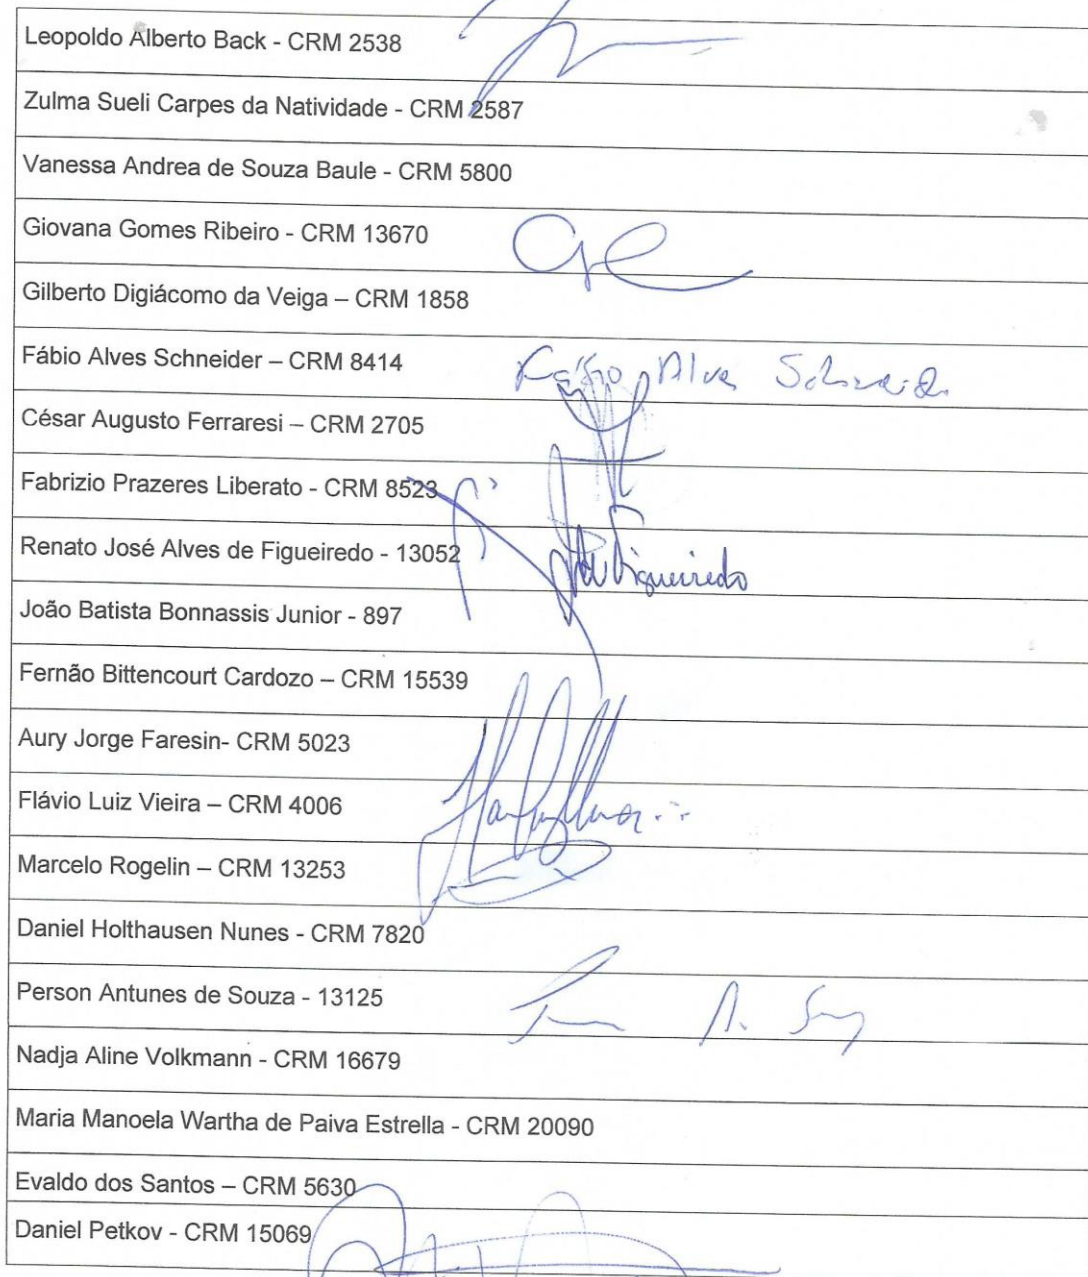 Leopoldo Alberto Back - CRM 2538
Zulma Sueli Carpes da Natividade - CRM 2587
Vanessa Andrea de Souza Baule - CRM 5800
Giovana Gomes Ribeiro - CRM 13670
Gilberto Digiácomo da Veiga – CRM 1858
Fábio Alves Schneider – CRM 8414
César Augusto Ferraresi – CRM 2705
Fabrizio Prazeres Liberato - CRM 8523
Renato José Alves de Figueiredo - 13052 Figueiredo
João Batista Bonnassis Junior - 897
Fernão Bittencourt Cardozo – CRM 15539
Aury Jorge Faresin- CRM 5023
Flávio Luiz Vieira – CRM 4006
Marcelo Rogelin – CRM 13253
Daniel Holthausen Nunes - CRM 7820
Person Antunes de Souza - 13125
Nadja Aline Volkmann - CRM 16679
Maria Manoela Wartha de Paiva Estrella - CRM 20090
Evaldo dos Santos – CRM 5630
Daniel Petkov - CRM 15069